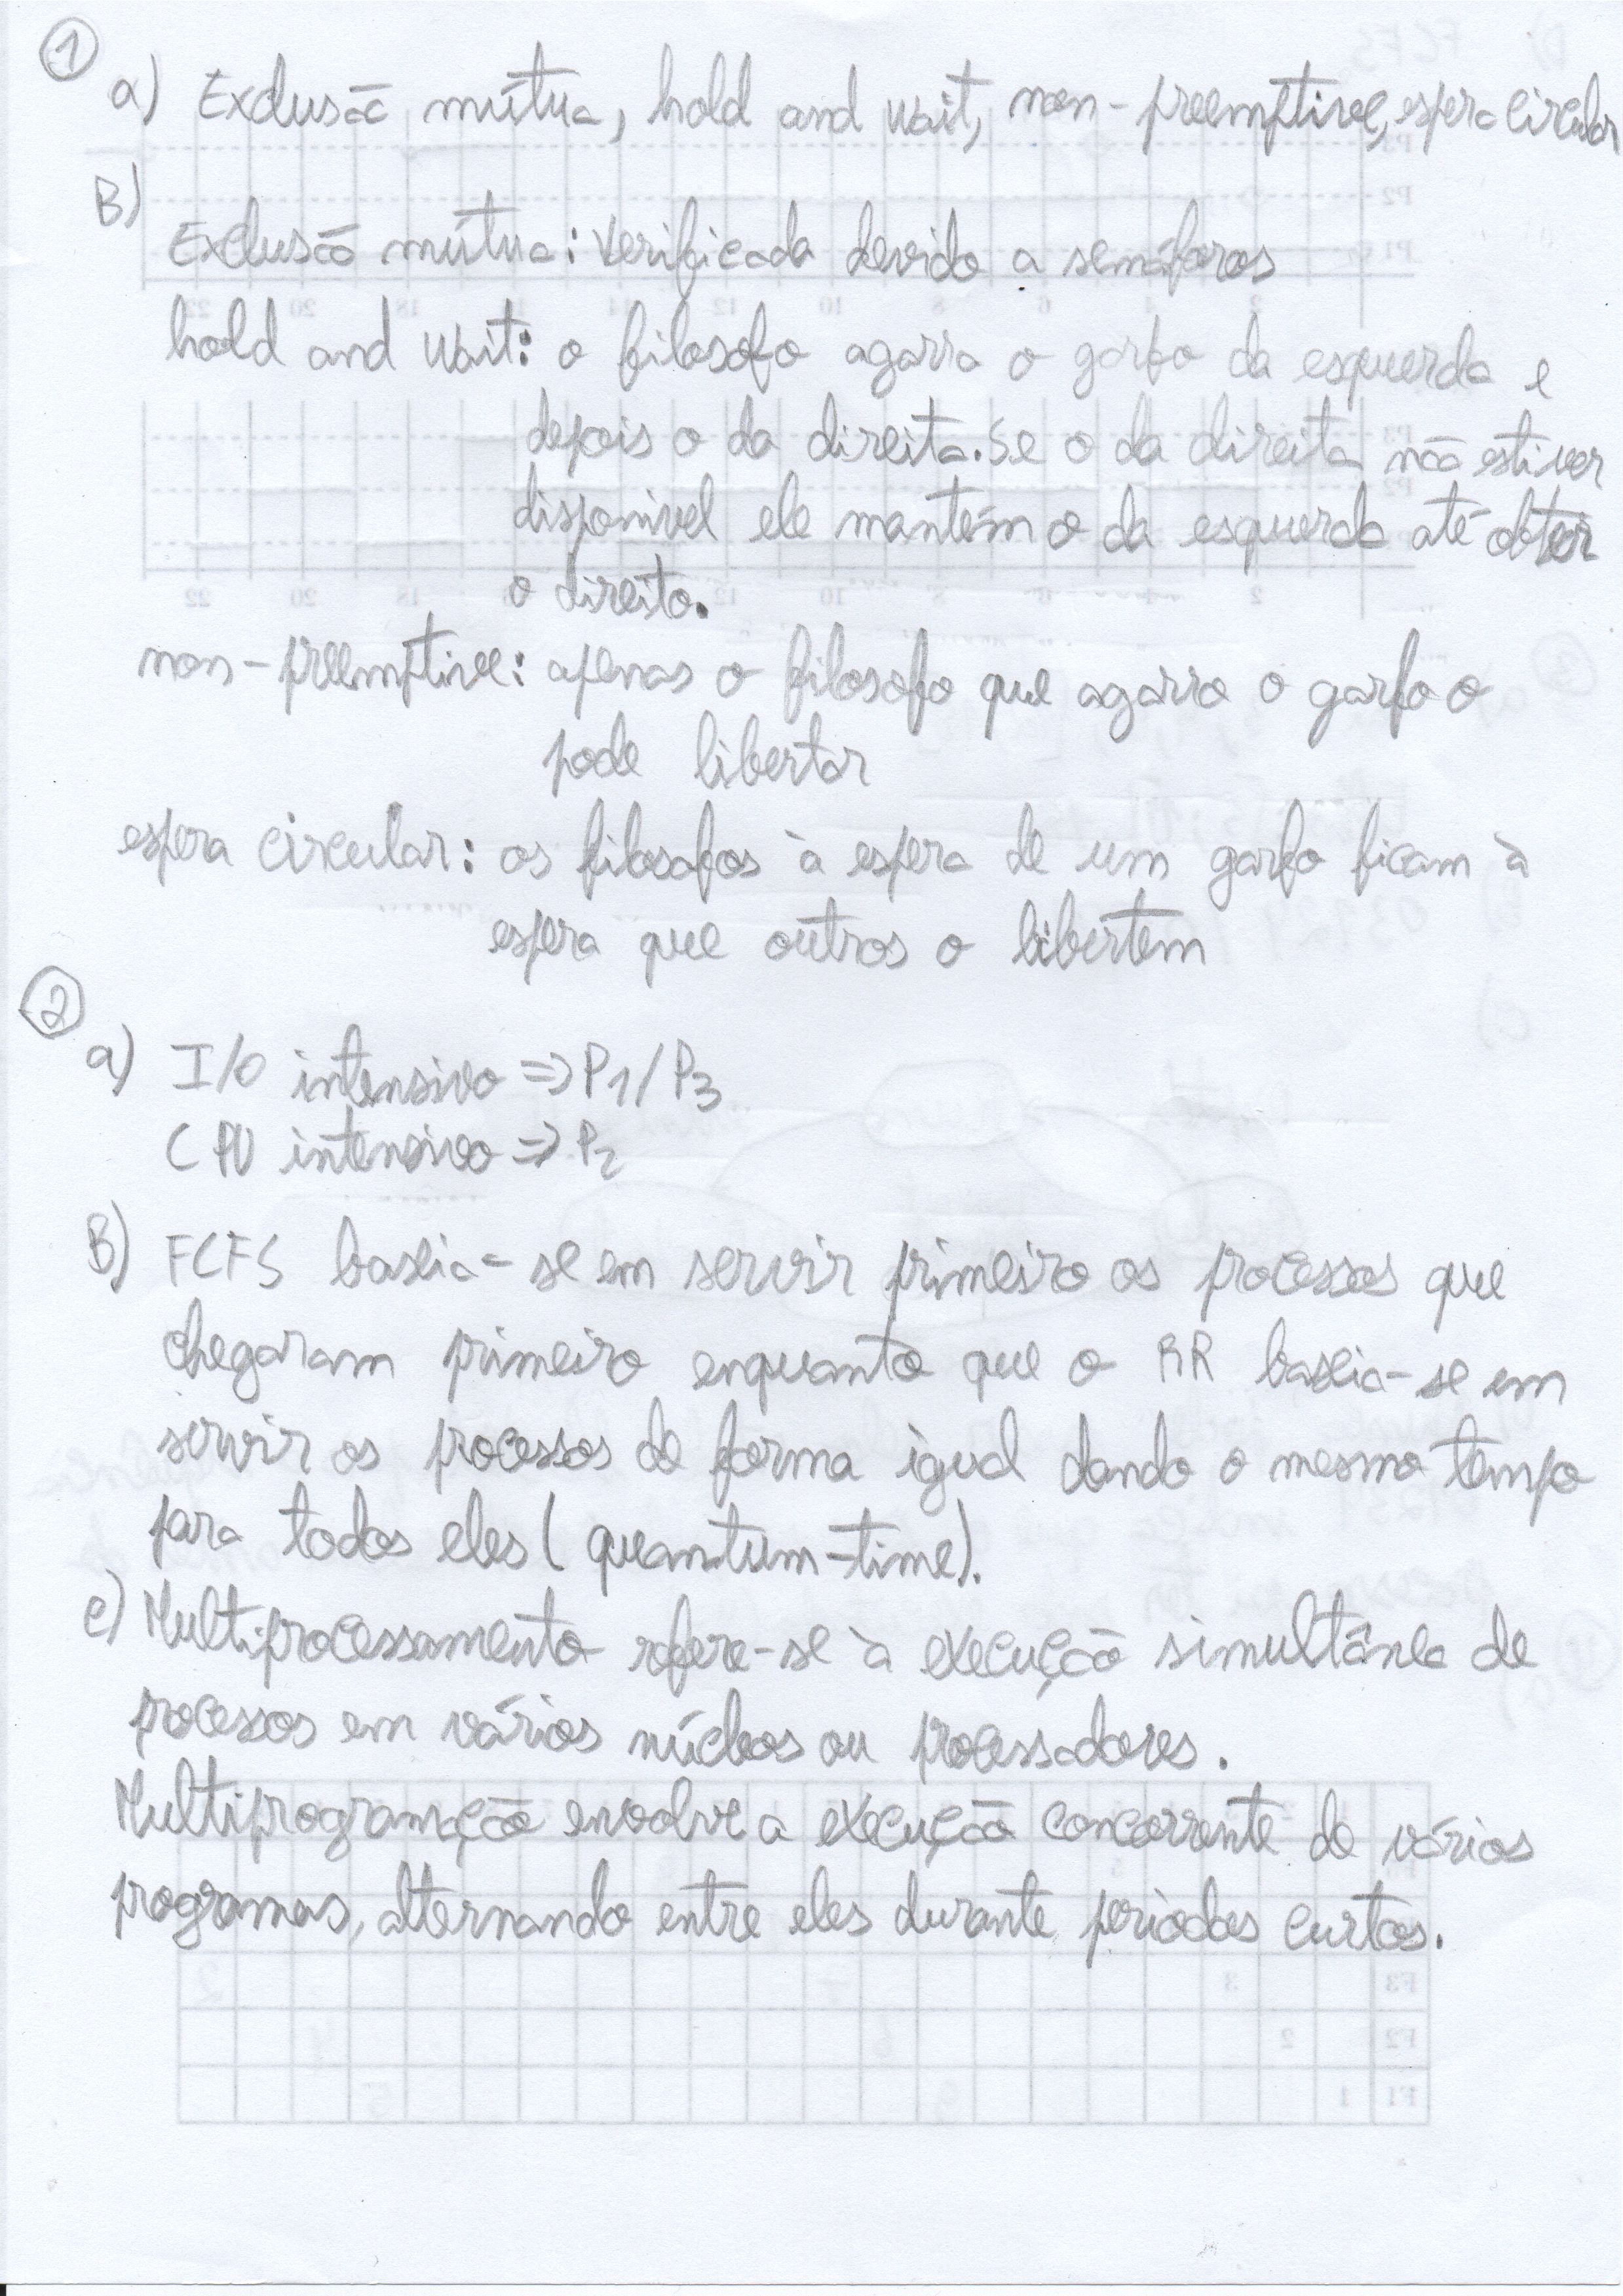 1
a) Exclusão mútua, hold and wait, non-preemptive, espera circular
B)
Exclusão mútua: Verificada devido a semáforos
hold and wait: o filosofo agarra o garfo da esquerda e
depois o da direita. Se o da direita não estiver
disponivel ele mantém o da esquerda até obter
o direito.
non-preemptive: apenas o filosofo que agarra o garfo o
pode libertar
espera circular: os filosofos à espera de um garfo ficam à
espera que outros o libertem
2
a) I/O intensivo => P1/P3
CPU intensivo => P2
B) FCFS baseia-se em servir primeiro os processos que
chegaram primeiro enquanto que o RR baseia-se em
servir os processos de forma igual dando o mesmo tempo
para todos eles (quantum-time).
c) Multiprocessamento refere-se à execução simultânea de
processos em vários núcleos ou processadores.
Multiprogramação envolve a execução concorrente de vários
programas, alternando entre eles durante periodos curtos.